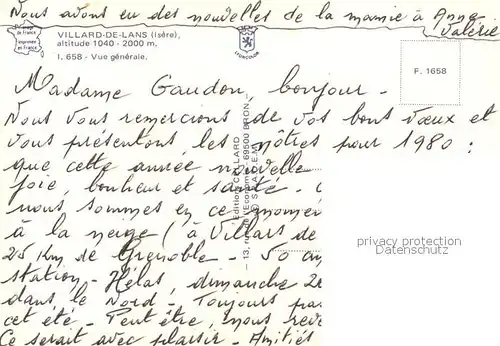 Nous avons eu des nouvelles de la mamie à Anna
Valérie
de France
Imprimée
en France
VILLARD-DE-LANS (Isère),
altitude 1040 - 2000 m.
I. 658 - Vue générale.
LYONCOLOR
F. 1658
Madame Gaudon, bonjour -
Nous vous remercions de vos bons vœux et
vous présentons les nôtres pour 1980 :
que cette année nouvelle
joie, bonheur et santé -
nous sommes en ce moment
à la neige (à Villars de
25 Km de Grenoble - 50
station - Hélas, dimanche
dans le Nord - Toujours
cet été - Peut être, nous
Ce serait avec plaisir - Amitiés
Editions CELLARD
13, rue de l'Economie - 69500 BRON
privacy protection
Datenschutz